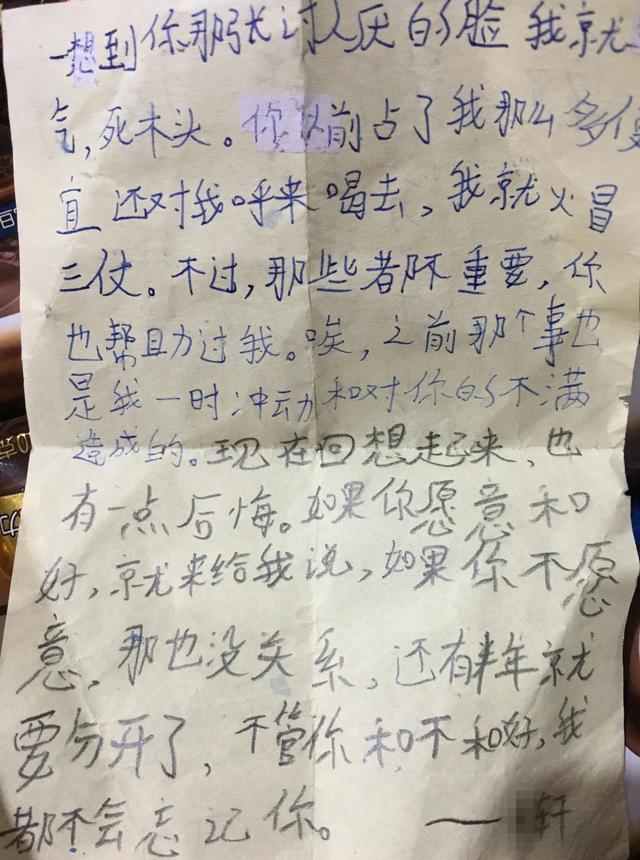 一想到你那张讨人厌的脸我就
气,死木头。你以前占了我那么多便
宜还对我呼来喝去,我就火冒
三仗。不过,那些都不重要,你
也帮助过我。唉,之前那个事也
是我一时冲动和对你的不满
造成的。现在回想起来,也
有一点后悔。如果你愿意和
好,就来给我说,如果你不愿
意,那也没关系,还有半年就
要分开了,不管你和不和好,我
都不会忘记你。——轩